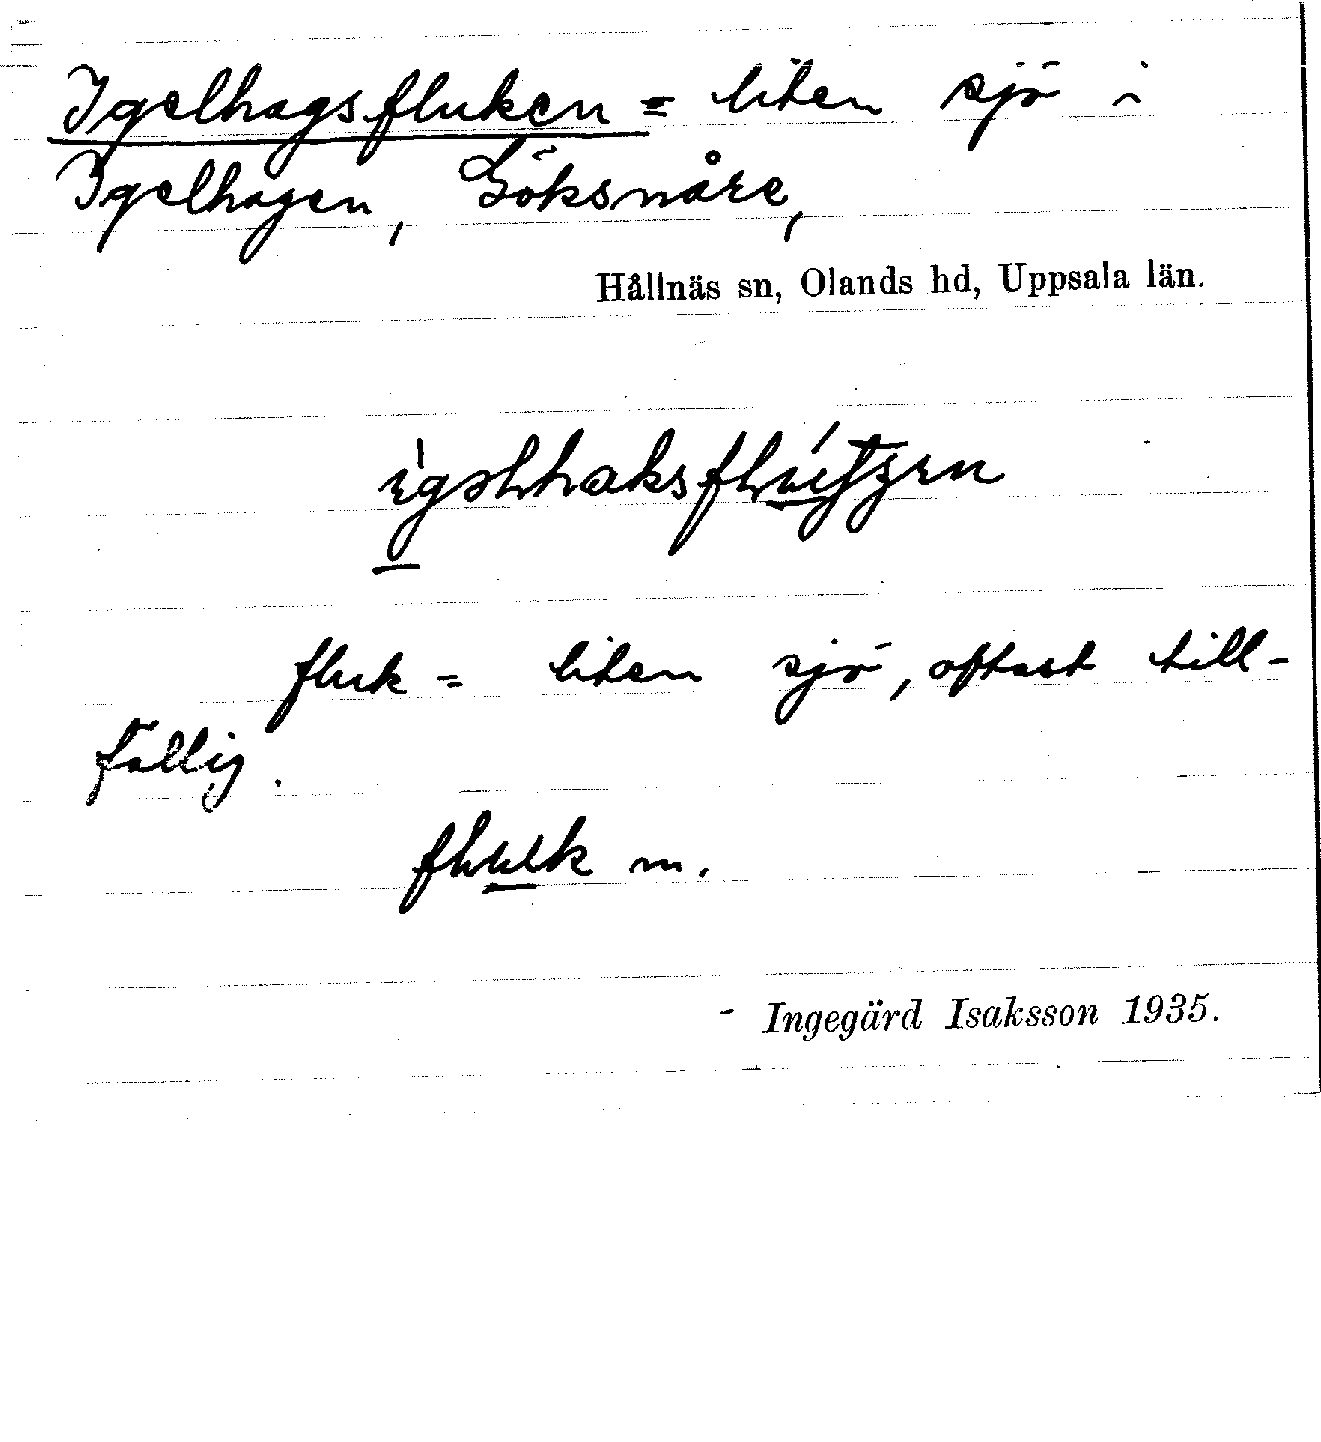 Igelhagsfluken = liten sjö i
Igelhagen, Göksnåre,
Hållnäs sn, Olands hd, Uppsala län.
fluk = liten sjö, oftast till-
fällig.
m.
- Ingegärd Isaksson 1935.